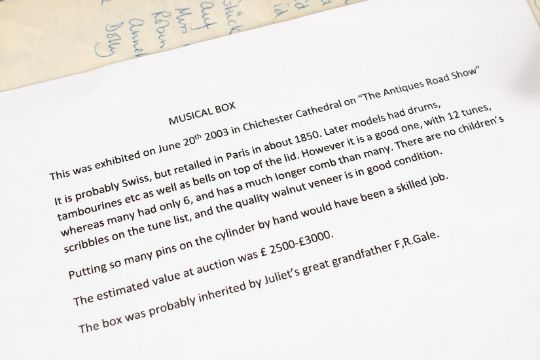 Chick
Aut
Miss
Robin
Anne
Dolly
MUSICAL BOX
This was exhibited on June 20th 2003 in Chichester Cathedral on "The Antiques Road Show"
It is probably Swiss, but retailed in Paris in about 1850. Later models had drums,
tambourines etc as well as bells on top of the lid. However it is a good one, with 12 tunes,
whereas many had only 6, and has a much longer comb than many. There are no children's
scribbles on the tune list, and the quality walnut veneer is in good condition.
Putting so many pins on the cylinder by hand would have been a skilled job.
The estimated value at auction was £ 2500-£3000.
The box was probably inherited by Juliet's great grandfather F,R.Gale.